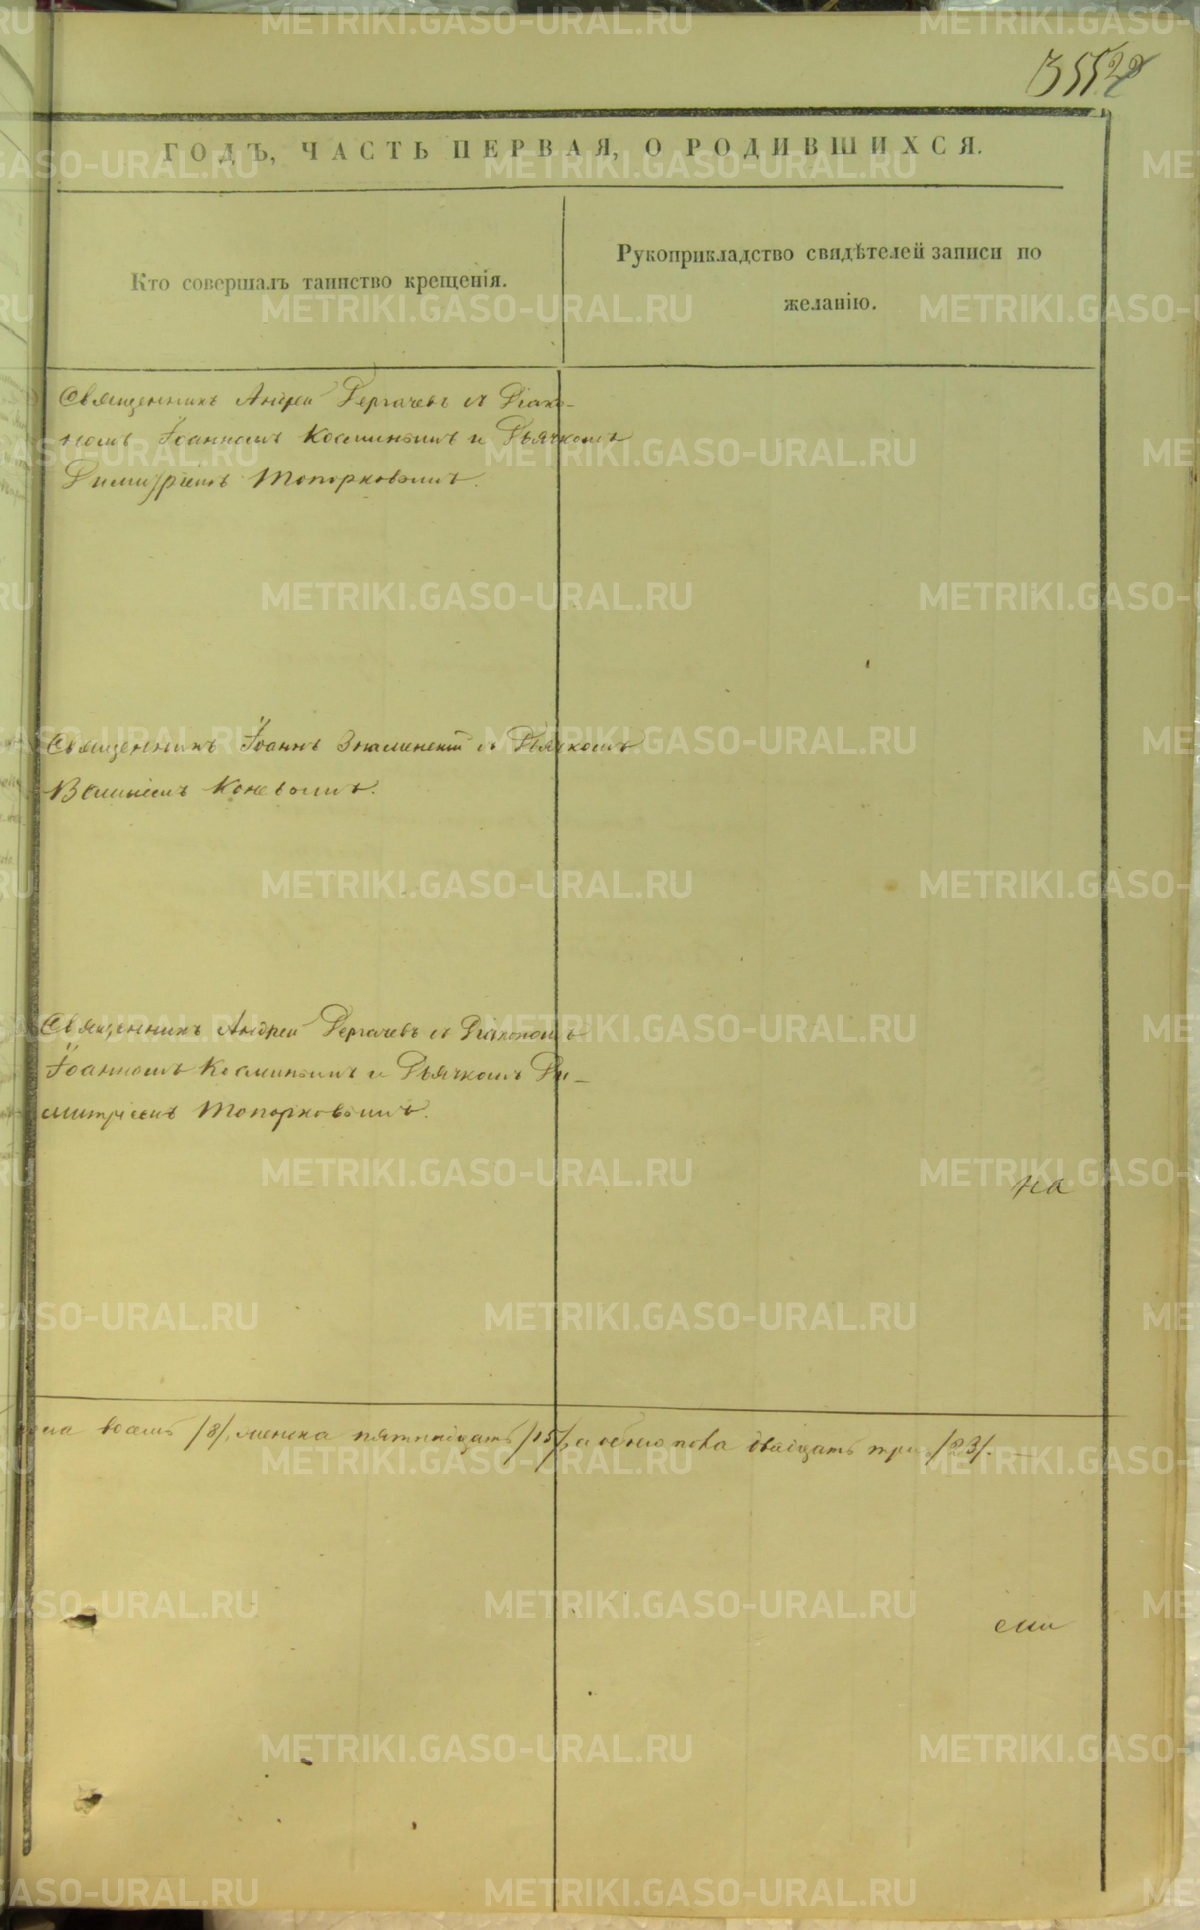 ГОДЪ, ЧАСТЬ ПЕРВАЯ, О РОДИВШИХСЯ.
Кто совершалъ таинство крещенія.
Рукоприкладство свидѣтелей записи по
желанію.
Священникъ Андрей Дергачевъ съ Діако-
номъ Іоанномъ Косминымъ и Дьячкомъ
Димитріемъ Топорковымъ.
Священникъ Іоаннъ Знаменскій съ Дьячкомъ
Коневымъ.
Священникъ Андрей Дергачевъ съ Діакономъ
Іоанномъ Косминымъ и Дьячкомъ Ди-
митріемъ Топорковымъ.
на
восемь /8/, женска пятнадцать /15/, а обоего пола двадцать три /23/.
сти
METRIKI.GASO-URAL.RU